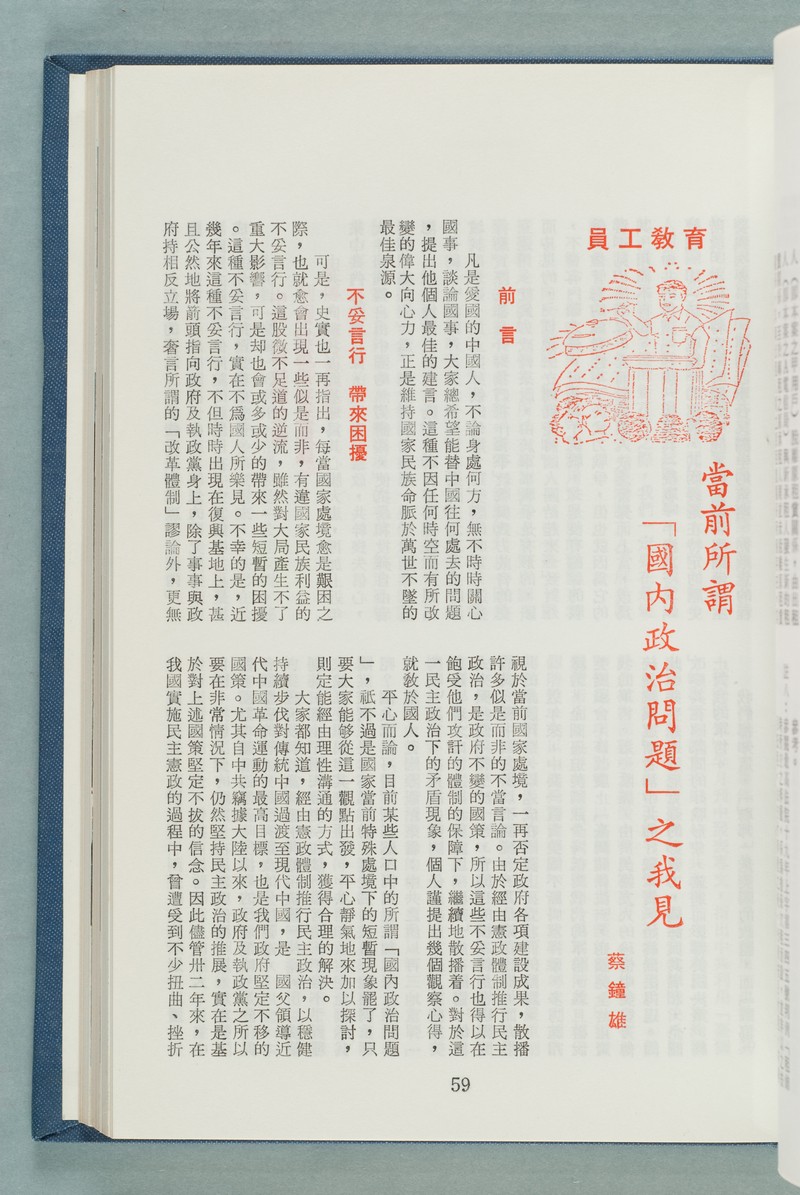 員工教育
當前所謂
「國內政治問題」之我見
蔡鐘雄
前言
凡是愛國的中國人，不論身處何方，無不時時關心
國事，談論國事，大家總希望能替中國往何處去的問題
，提出他個人最佳的建言。這種不因任何時空而有所改
變的偉大向心力，正是維持國家民族命脈於萬世不墜的
最佳泉源。
不妥言行　帶來困擾
可是，史實也一再指出，每當國家處境愈是艱困之
際，也就愈會出現一些似是而非，有違國家民族利益的
不妥言行。這股微不足道的逆流，雖然對大局產生不了
重大影響，可是却也會或多或少的帶來一些短暫的困擾
。這種不妥言行，實在不爲國人所樂見。不幸的是，近
幾年來這種不妥言行，不但時時出現在復興基地上，甚
且公然地將箭頭指向政府及執政黨身上，除了事事與政
府持相反立場，奢言所謂的「改革體制」謬論外，更無
視於當前國家處境，一再否定政府各項建設成果，散播
許多似是而非的不當言論。由於經由憲政體制推行民主
政治，是政府不變的國策，所以這些不妥言行也得以在
飽受他們攻訐的體制的保障下，繼續地散播着。對於這
一民主政治下的矛盾現象，個人謹提出幾個觀察心得，
就教於國人。
平心而論，目前某些人口中的所謂「國內政治問題
」，祇不過是國家當前特殊處境下的短暫現象罷了，只
要大家能夠從這一觀點出發，平心靜氣地來加以探討，
則定能經由理性溝通的方式，獲得合理的解決。
大家都知道，經由憲政體制推行民主政治，以穩健
持續步伐對傳統中國過渡至現代中國，是　國父領導近
代中國革命運動的最高目標，也是我們政府堅定不移的
國策。尤其自中共竊據大陸以來，政府及執政黨之所以
要在非常情況下，仍然堅持民主政治的推展，實在是基
於對上述國策堅定不拔的信念。因此儘管卅二年來，在
我國實施民主憲政的過程中，曾遭受到不少扭曲、挫折
59